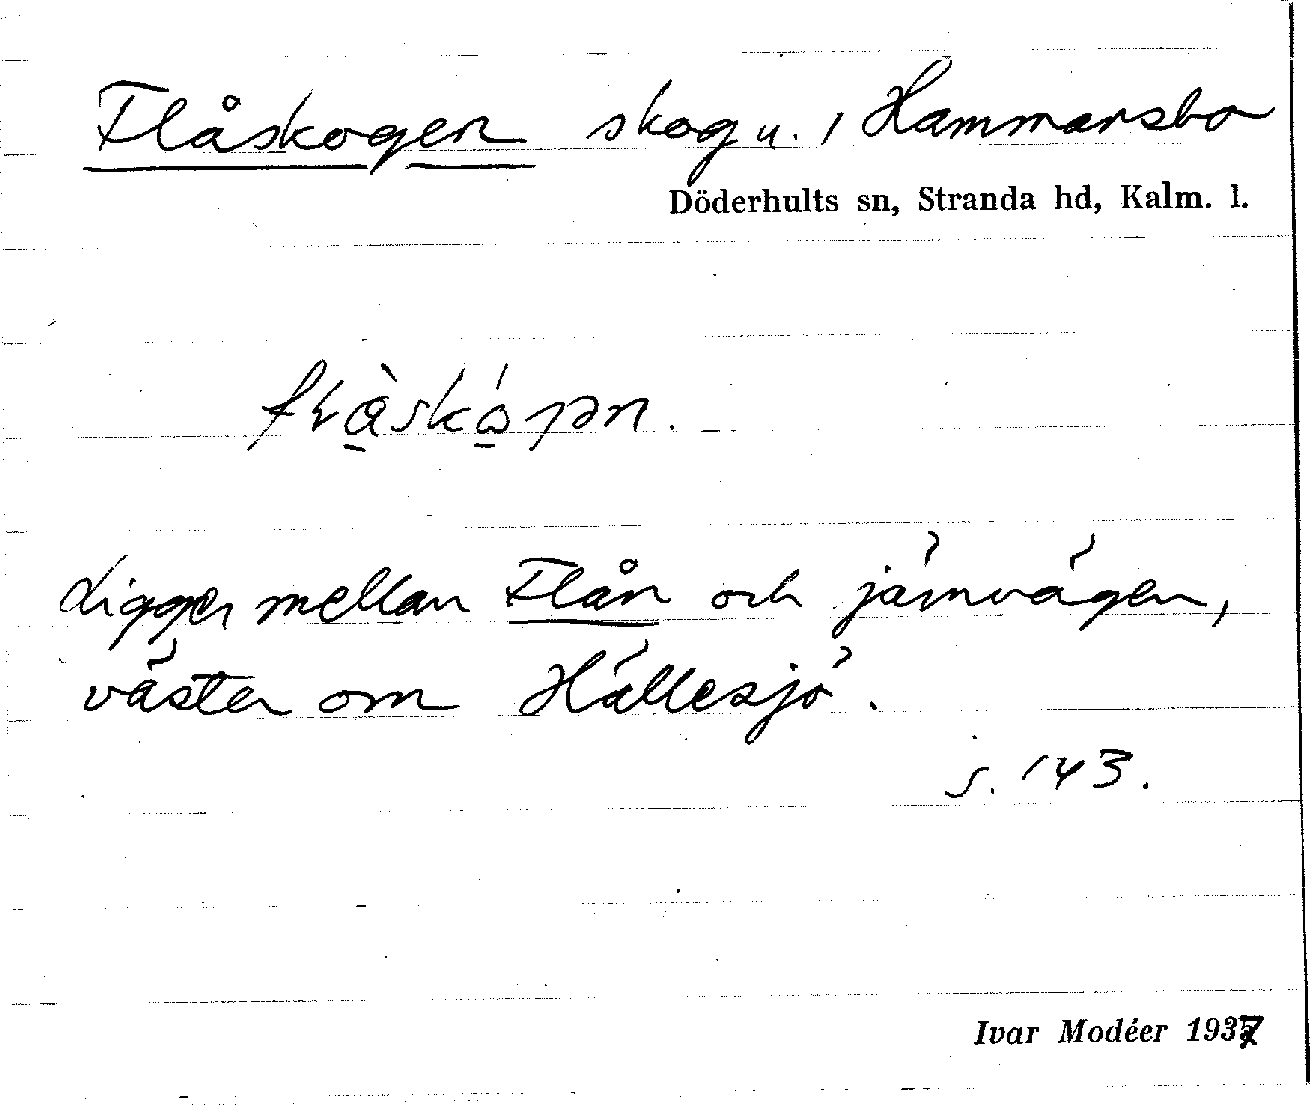 Flåskogen skog u. 1 Hammarsbo
Döderhults sn, Stranda hd, Kalm. l.
Ligger mellan Flån och järnvägen,
väster om Hällesjö.
s. 143.
Ivar Modéer 1937